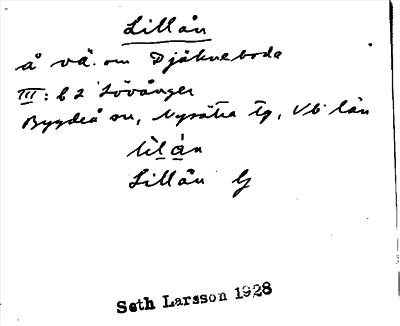 Lillån
å vä. om Djäkneboda
III: b 2 Lövånger
Bygdeå sn, Nysätra tg, Vb län
lìlán
Lillån G
Seth Larsson 1928